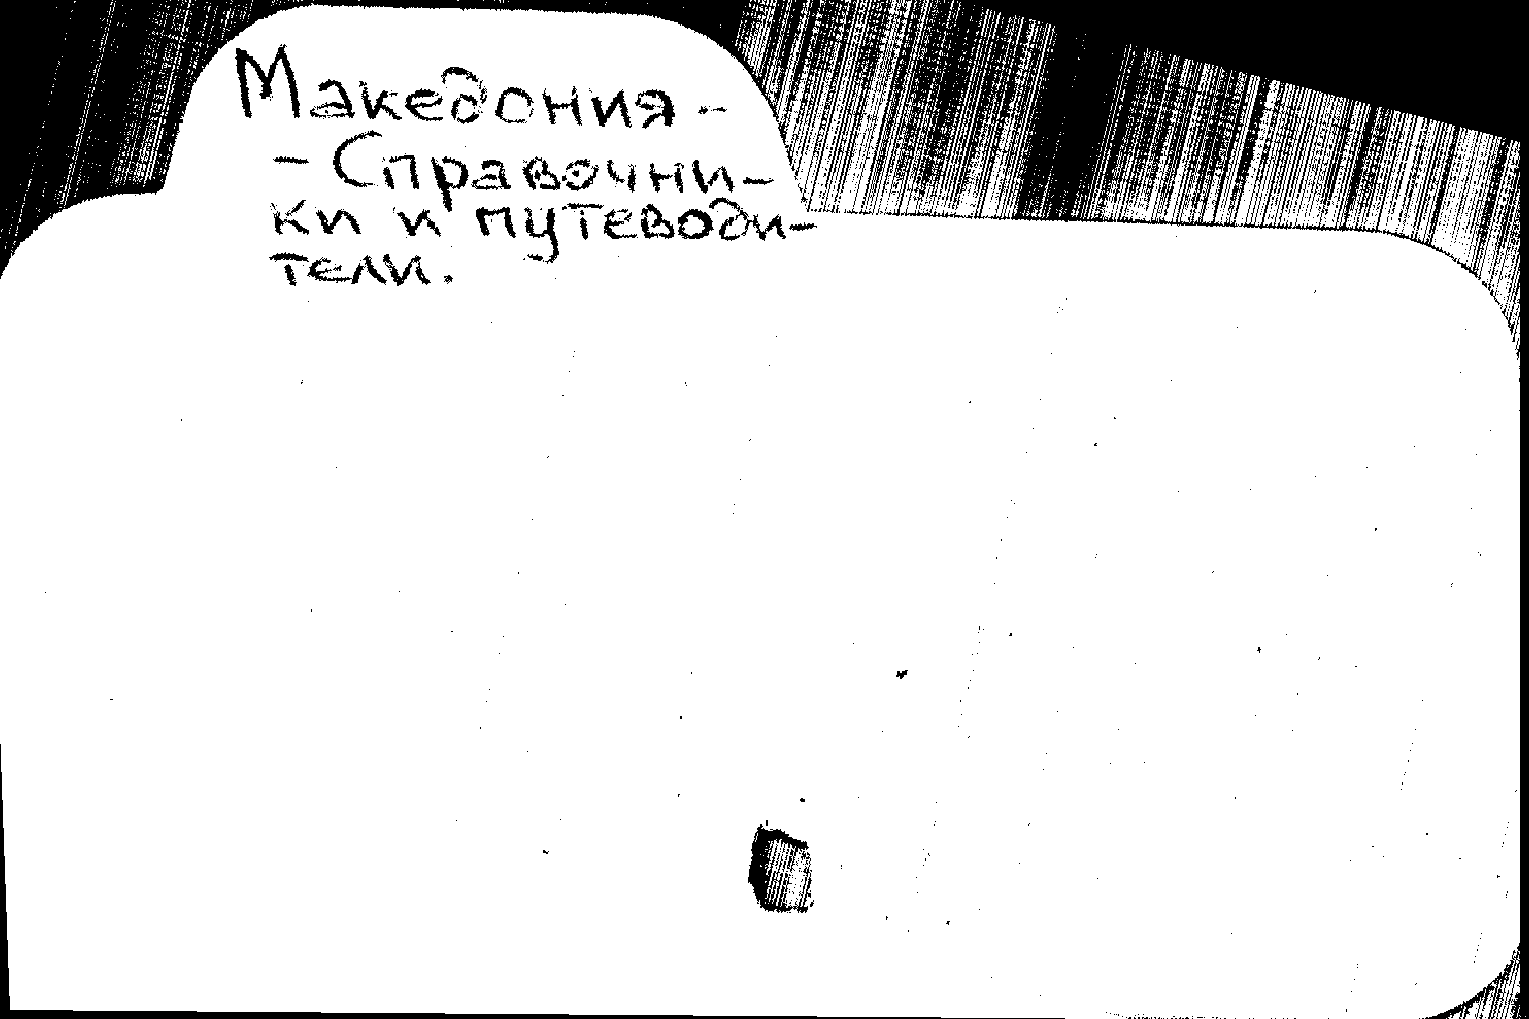 Македония -
- Справочни-
ки и путеводи-
тели.